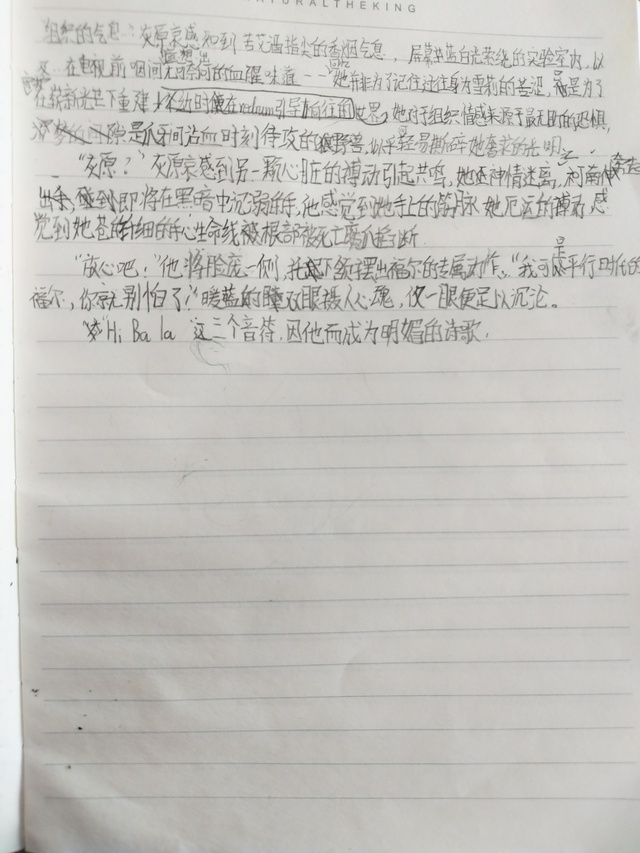 NATURALTHEKING
组织的气息：灰原哀感知到苦艾酒指尖的香烟气息，屏幕蓝白光萦绕的实验室内，以
及在电视前咽间的血腥味道——她并非为了记住过往身为雪莉的苦涩，而是为了
在崭新光芒下重建，不经时便在redrum引导向往的世界，她对于组织情感来源于最无助的恐惧，
是爪牙间沾血时刻待攻的野兽，以轻易撕碎她奢求的光明。
"灰原？"灰原哀感到另一颗心脏的搏动引起共鸣，她还神情迷离，柯南伸
出手，碰到即将在黑暗中沉溺的手，他感觉到她手上的筋脉她厄运的搏动，感
觉到她苍白细的手心生命线被根部被死亡魔爪掐断.
"放心吧！"他将脸庞一侧，托下颌摆出福尔的专属动作，"我可是平行时代的
福尔，你就别怕了！"暖蓝的双眼摄人心魂，仅一眼便足以沉沦。
"Hi Ba la 这三个音符，因他而成为明媚的诗歌.